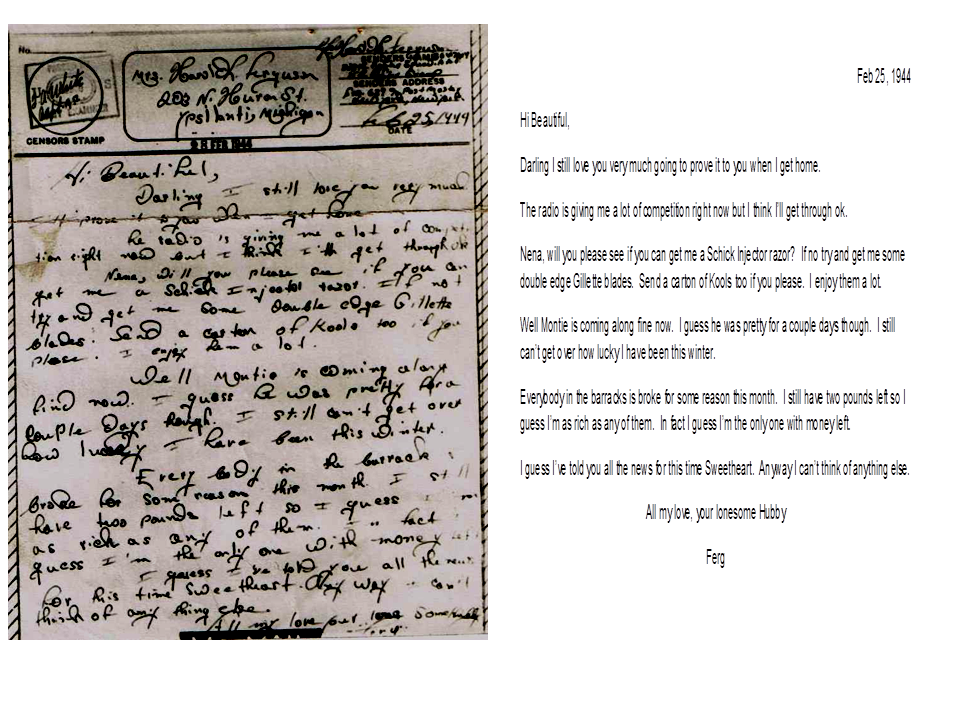 No.
CENSORS STAMP
Mrs. Harold Ferguson
203 N. Huron St.
Ypsilanti Michigan
SENDERS ADDRESS
Feb 25, 1944
DATE
28 FEB 1944
Hi Beautiful,
Darling I still love you very much
prove it to you when I get home
he radio is giving me a lot of competi
tion right now but I think I'll get through ok
Nena, will you please see if you can
get me a Schick Injector razor. If not
try and get me some double edge Gillette
blades. Send a carton of Kools too if you
please. I enjoy them a lot.
Well Montie is coming along
find now. I guess he was pretty for a
couple days though. I still can't get over
how lucky I have been this winter.
Every body in the barrack
broke for some reason this month I still
have two pounds left so I guess
as rich as any of them. In fact
guess I'm the only one with money left
I guess I've told you all the news
for this time Sweetheart. Any way I can't
think of any thing else.
All my love your lonesome Hubby
Ferg
Feb 25, 1944
Hi Beautiful,
Darling I still love you very much going to prove it to you when I get home.
The radio is giving me a lot of competition right now but I think I'll get through ok.
Nena, will you please see if you can get me a Schick Injector razor? If no try and get me some
double edge Gillette blades. Send a carton of Kools too if you please. I enjoy them a lot.
Well Montie is coming along fine now. I guess he was pretty for a couple days though. I still
can't get over how lucky I have been this winter.
Everybody in the barracks is broke for some reason this month. I still have two pounds left so I
guess I'm as rich as any of them. In fact I guess I'm the only one with money left.
I guess I've told you all the news for this time Sweetheart. Anyway I can't think of anything else.
All my love, your lonesome Hubby
Ferg